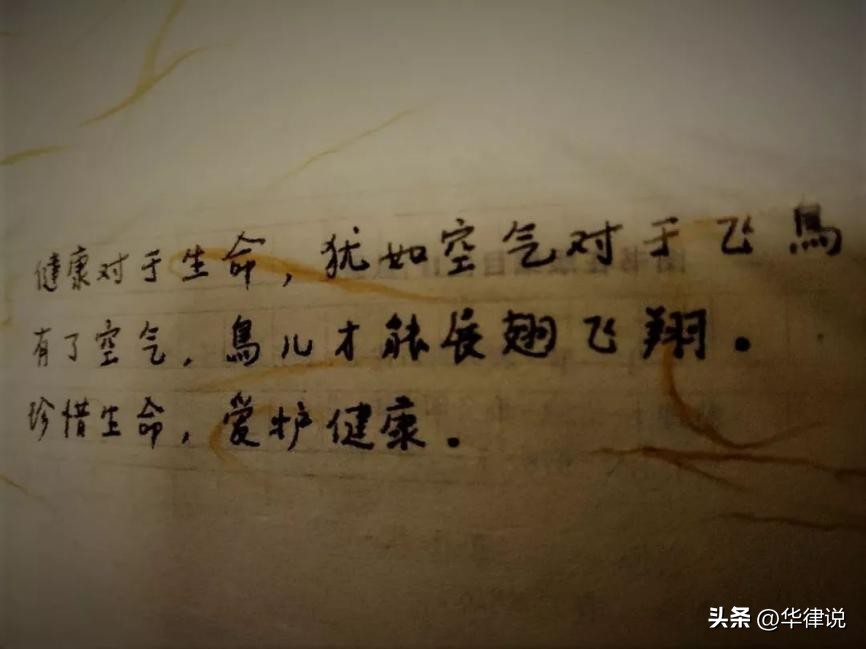 健康对于生命，犹如空气对于飞鳥
有了空气，鳥儿才能展翅飞翔。
珍惜生命，爱护健康。
头条 @华律说